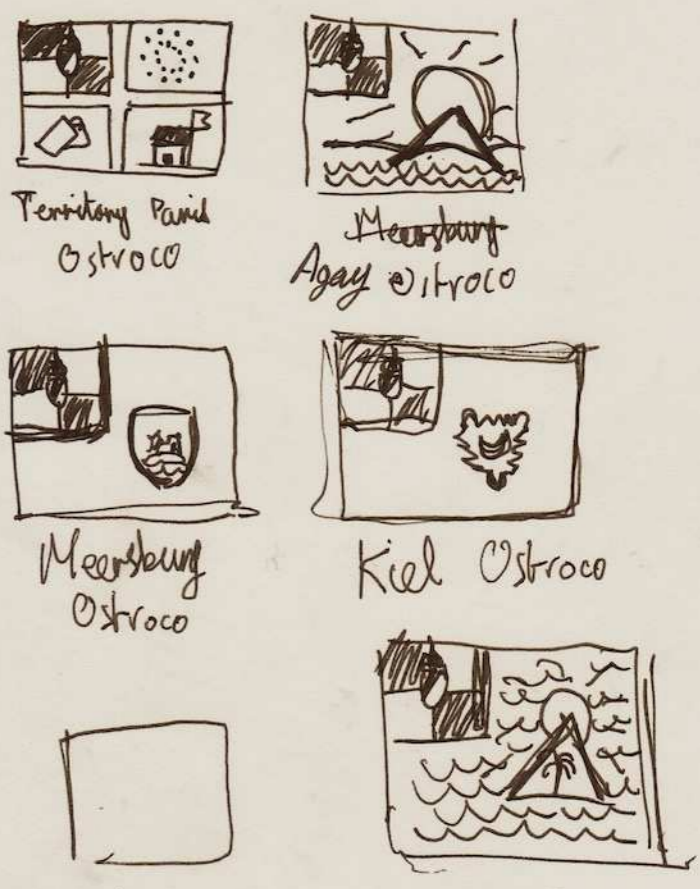 Territory
Ostroco
Meersburg
Agay Ostroco
Meersburg
Ostroco
Kiel Ostroco